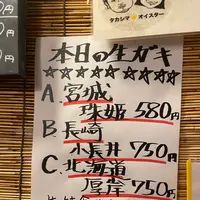 タカシマ★オイスター
0円
0円
本日の生ガキ
☆☆☆☆☆☆☆☆☆
A.宮城
珠姫 580円
B長崎
小長井 750円
C.北海道
厚岸 750円